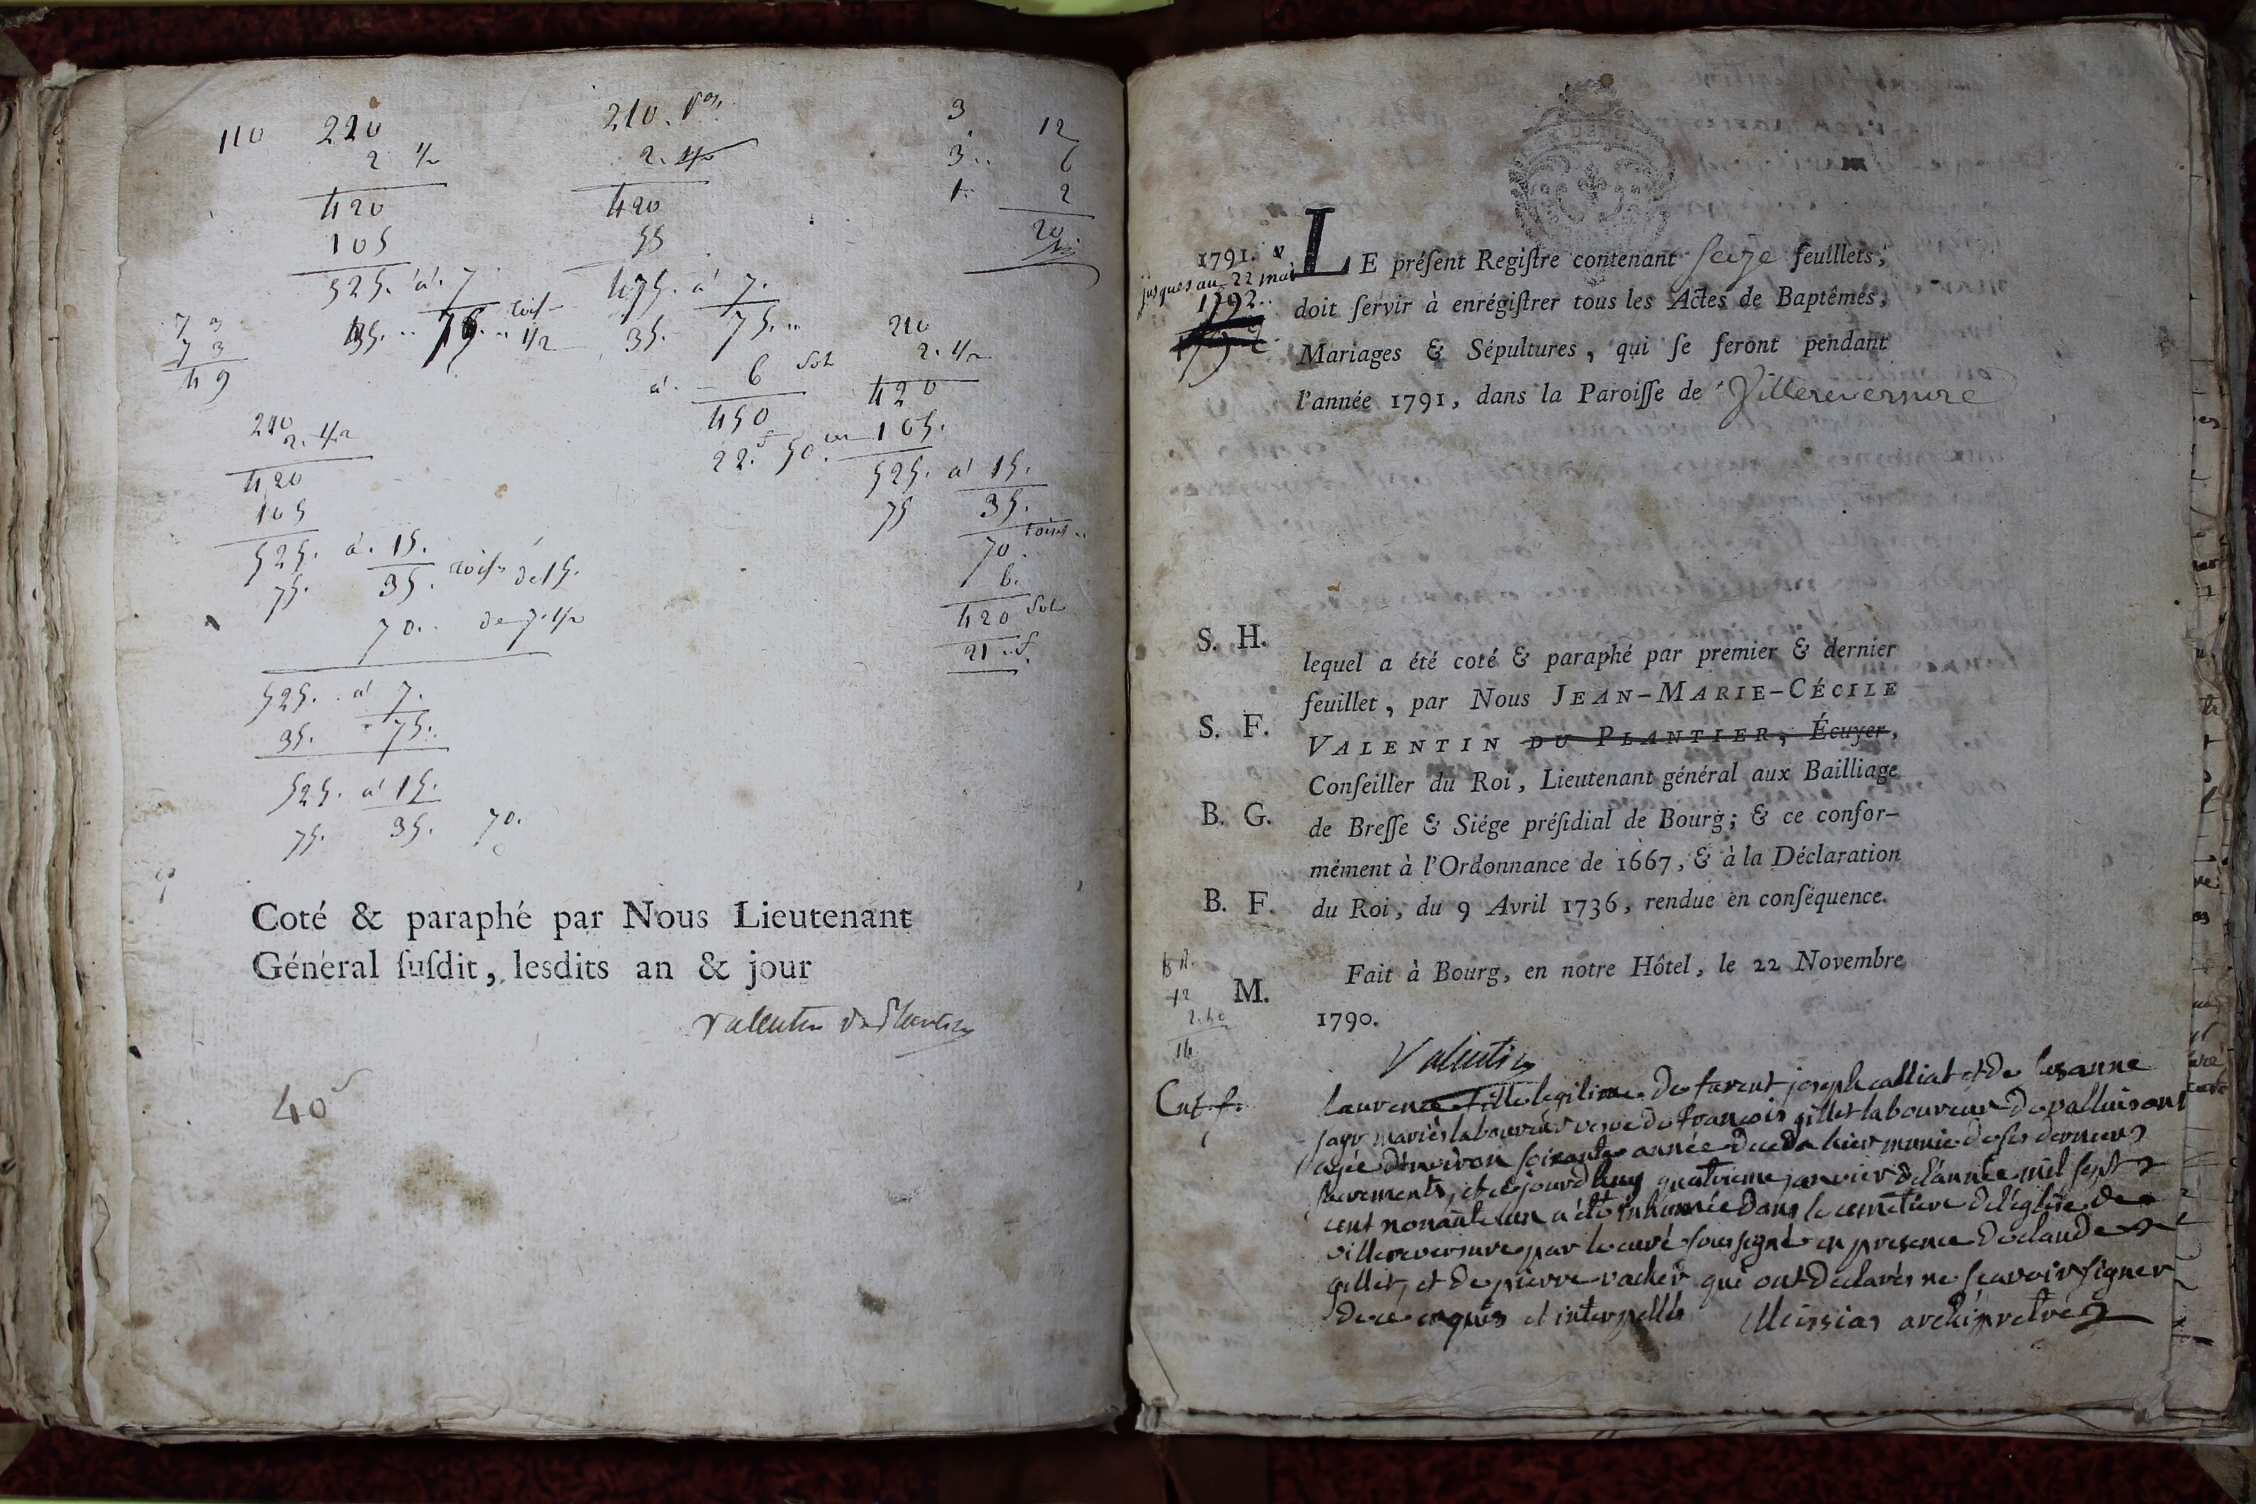 110 220 210. 3 12
2 1/2 2. 1/2 3.. 6
420 420 1. 2
105 55 20
525. a. 7 475. a 7.
35. .. 75. .. 1/2 35. 75. ..
7 3
7 3
49
a. 6 Sol
450
22. 50.
210
2. 1/2
420
105.
525. a 15.
75 35.
70.
6.
420 Sol
21
210
2. 1/2
420
105
525. a. 15.
75. 35. de 15.
70.. de 7. 1/2
525. a 7.
35. 75.
525. a 15.
75. 35. 70.
Coté & paraphé par Nous Lieutenant
Général ſuſdit, lesdits an & jour
Valentin du Plantier
40
1791. &
jusques au 22 mai
1792..
LE préſent Regiſtre contenant seize feuillets,
doit ſervir à enrégiſtrer tous les Actes de Baptêmes,
Mariages & Sépultures, qui ſe feront pendant
l'année 1791, dans la Paroiſſe de Villereversure
S. H.
lequel a été coté & paraphé par premier & dernier
feuillet, par Nous JEAN-MARIE-CÉCILE
S. F.
VALENTIN DU PLANTIER, Écuyer,
Conſeiller du Roi, Lieutenant général aux Bailliage
B. G.
de Breſſe & Siége préſidial de Bourg; & ce confor-
mément à l'Ordonnance de 1667, & à la Déclaration
B. F.
du Roi, du 9 Avril 1736, rendue en conſéquence.
Fait à Bourg, en notre Hôtel, le 22 Novembre
M.
1790.
Valentin
laurence fille legitime de furent joseph calliat et de suzanne
jayr mariés laboureurs veuve de françois gillet laboureur de
agée d'environ soixante année deceda hier munie de ses derniers
sacrements, et ce jourd'huy quatrieme janvier de l'année mil sept
cent nonante un a été inhumée dans le cemetiere de l'églisse de
villereversure par le curé soussigné en presence de claude
gillet, et de pierre vacher qui ont declarés ne scavoir signer
de ce enquis et interpellés Meissiat archiprètre